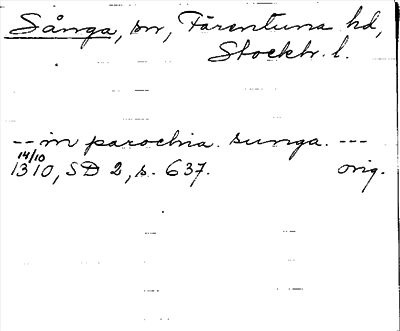 Sånga, sn, Färentuna hd,
Stockh. l.
-- in parochia. sunga. ---
14/10
1310, SD 2, s. 637. orig.